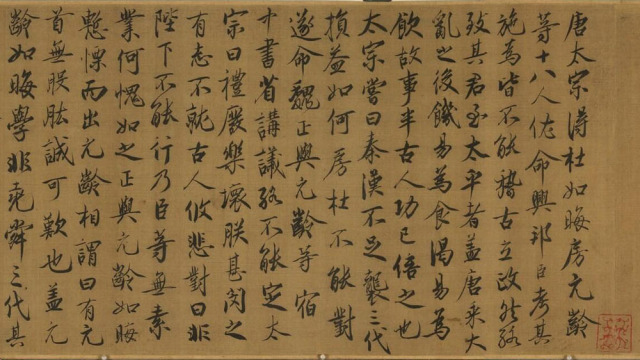 唐太宗得杜如晦房元齡
等十八人佐命興邦臣考其
施為皆不能稽古立政然終
致其君至太平者蓋唐乘大
亂之後饑易為食渴易為
飲故事半古人功已倍之也
太宗嘗曰秦漢不足襲三代
損益如何房杜不能對
遂命魏正與元齡等宿
中書省講議終不能定太
宗曰禮廢樂壞朕甚閔之
有志不就古人攸悲對曰非
陛下不能行乃臣等無素
業何愧如之正與元齡如晦
慙慄而出元齡相謂曰有元
首無股肱誠可歎也蓋元
齡如晦學非堯舜三代其